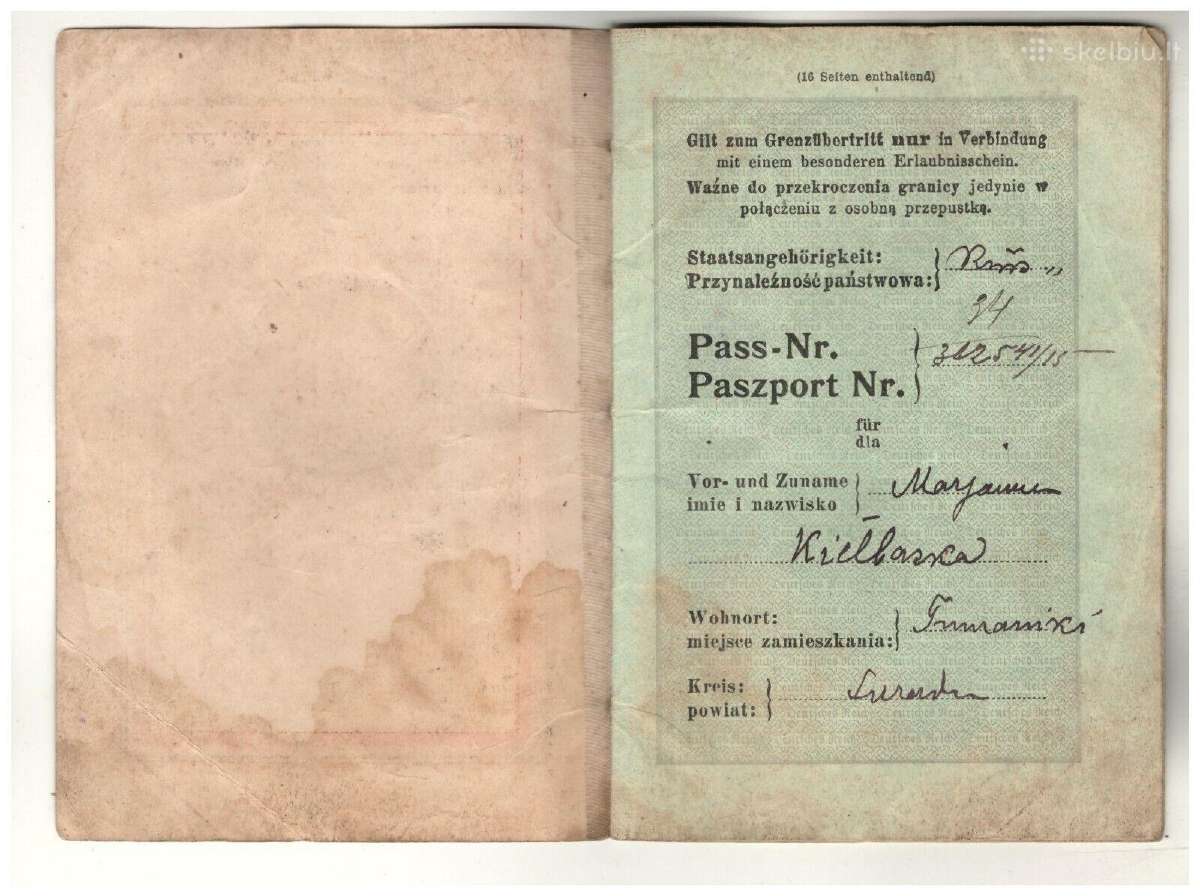 skelbiu.lt
(16 Seiten enthaltend)
Gilt zum Grenzübertritt nur in Verbindung
mit einem besonderen Erlaubnisschein.
Ważne do przekroczenia granicy jedynie w
połączeniu z osobną przepustką.
Staatsangehörigkeit:
Przynależność państwowa:
34
Pass-Nr.
Paszport Nr.
für
dla
Vor- und Zuname
imie i nazwisko
Kiełbaska
Wohnort:
miejsce zamieszkania:
Kreis:
powiat: